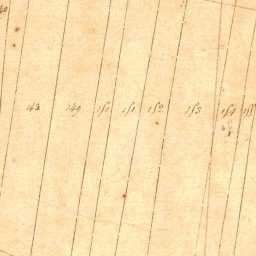 148 149 150 151 152 153 154 155